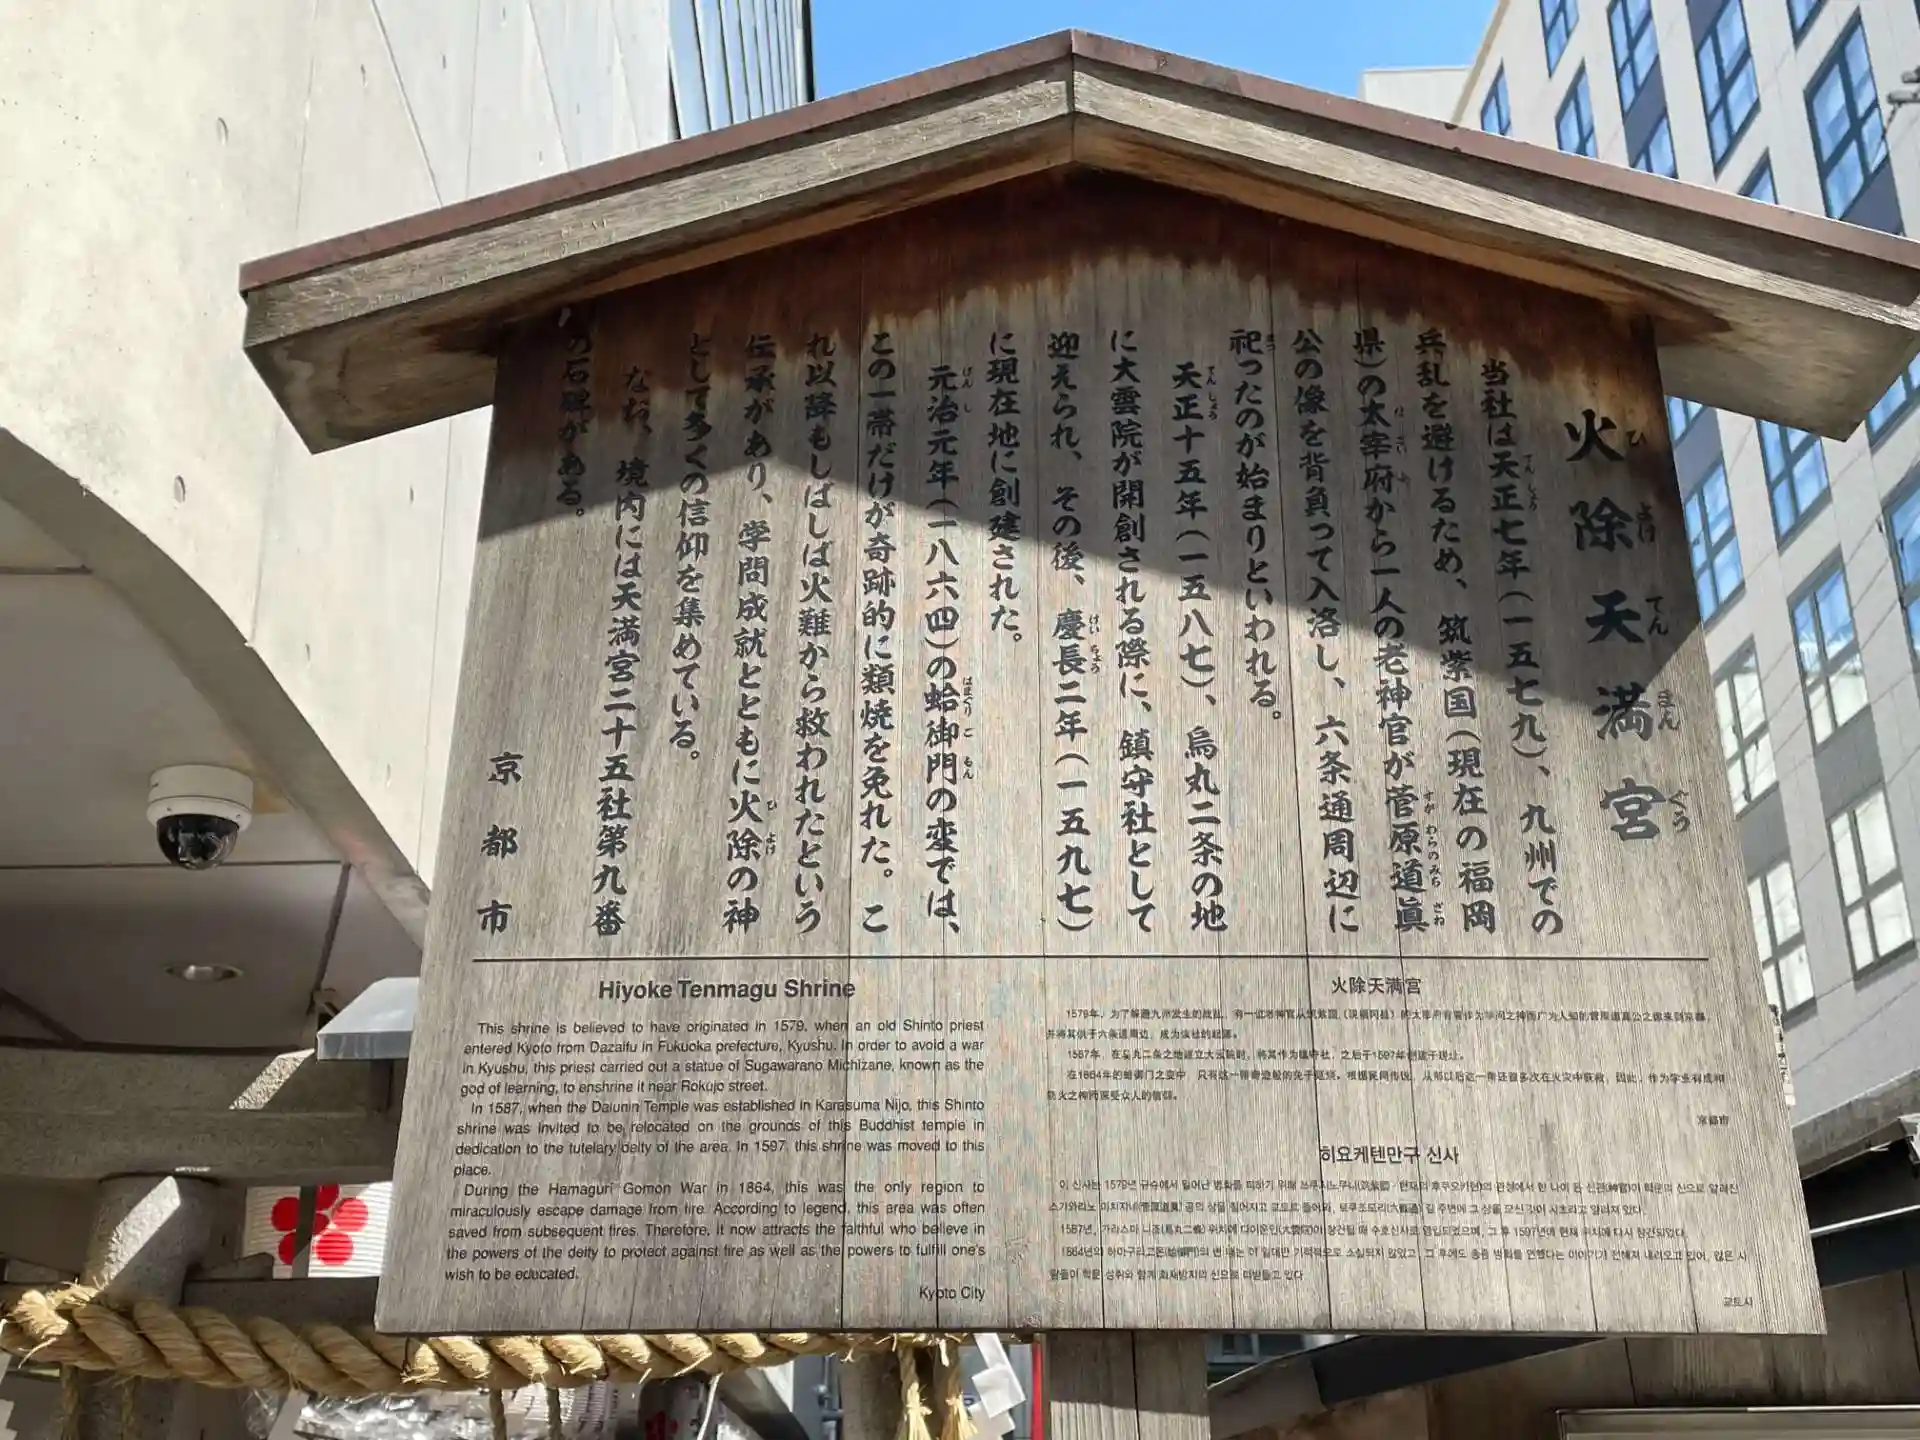 火除天満宮
当社は天正七年(一五七九)、九州での
兵乱を避けるため、筑紫国(現在の福岡
県)の太宰府から一人の老神官が菅原道眞
公の像を背負って入洛し、六条通周辺に
祀ったのが始まりといわれる。
天正十五年(一五八七)、烏丸二条の地
に大雲院が開創される際に、鎮守社として
迎えられ、その後、慶長二年(一五九七)
に現在地に創建された。
元治元年(一八六四)の蛤御門の変では、
この一帯だけが奇跡的に類焼を免れた。こ
れ以降もしばしば火難から救われたという
伝承があり、学問成就とともに火除の神
として多くの信仰を集めている。
なお、境内には天満宮二十五社第九番
の石碑がある。
京都市
Hiyoke Tenmagu Shrine
This shrine is believed to have originated in 1579, when an old Shinto priest
entered Kyoto from Dazaifu in Fukuoka prefecture, Kyushu. In order to avoid a war
in Kyushu, this priest carried out a statue of Sugawarano Michizane, known as the
god of learning, to enshrine it near Rokujo street.
In 1587, when the Daiunin Temple was established in Karasuma Nijo, this Shinto
shrine was invited to be relocated on the grounds of this Buddhist temple in
dedication to the tutelary deity of the area. In 1597, this shrine was moved to this
place.
During the Hamaguri Gomon War in 1864, this was the only region to
miraculously escape damage from fire. According to legend, this area was often
saved from subsequent fires. Therefore, it now attracts the faithful who believe in
the powers of the deity to protect against fire as well as the powers to fulfill one's
wish to be educated.
Kyoto City
火除天满宫
1579年，为了躲避九州发生的战乱，有一位老神官从筑紫国
并将其供于六条通周边，成为该社的起源。
1587年，在乌丸二条之地建立大云院时，将其作为镇守社，之后于1597年创建于现址。
在1864年的蛤御门之变中，只有这一带奇迹般的免于延烧。根据民间传说，从那以后这一带还曾多次在火灾中获救，因此，作为学业有成和
防火之神而深受众人的信仰。
京都市
히요케텐만구 신사
이 신사는 1579년 규슈에서 일어난 병화를 피하기 위해
1587년, 가라스마 니조(烏丸二條) 위치에 다이운인(大雲院)이 창건될 때 수호신사로 영입되었으며, 그 후 1597년에 현재 위치에 다시 창건되었다.
교토시